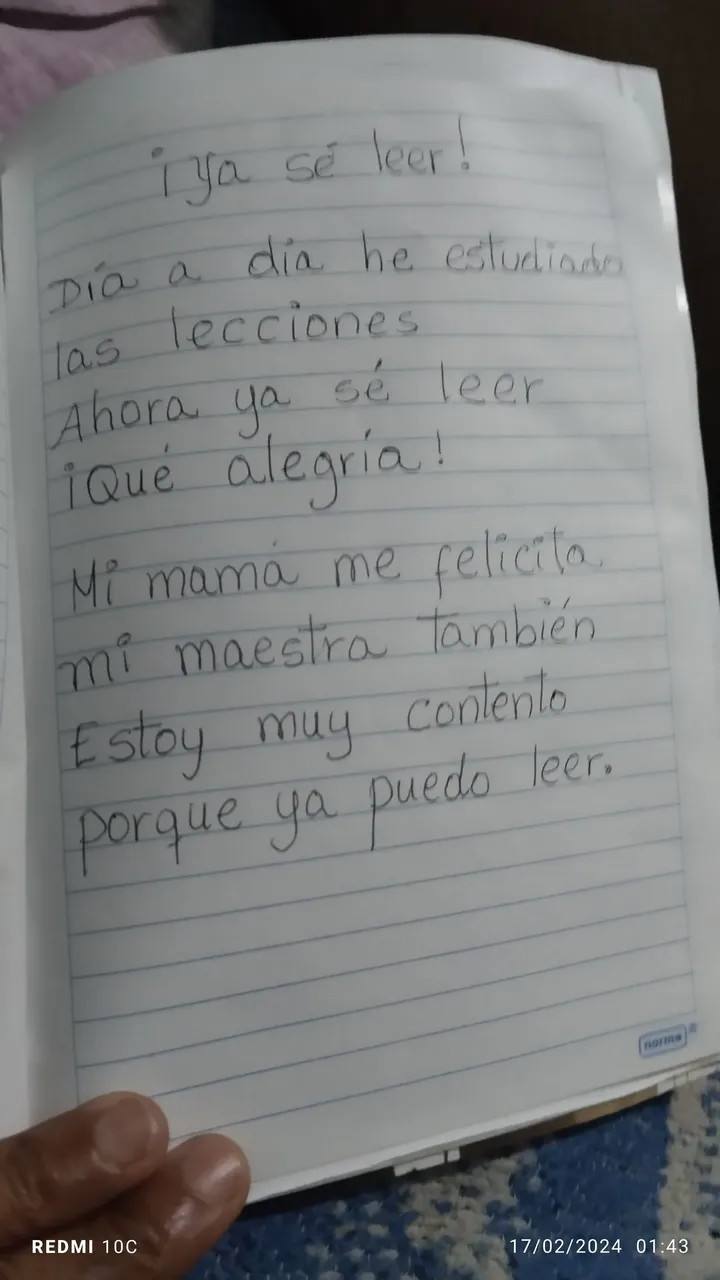 ¡Ya sé leer!
Día a día he estudiado
las lecciones
Ahora ya sé leer
¡Qué alegría!
Mi mamá me felicita.
mi maestra también
Estoy muy contento
porque ya puedo leer.
norma
REDMI 10C
17/02/2024 01:43